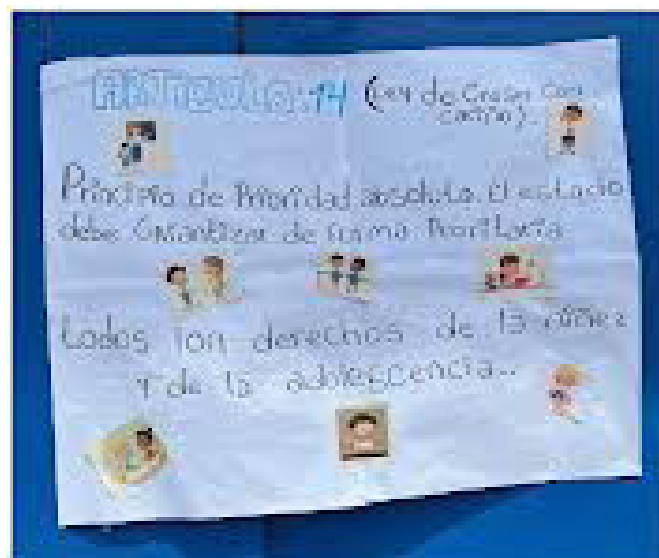 Articulo: 14 (Ley de Crecer Con
cariño).
Principio de Prioridad absoluta. El estado
debe Garantizar de forma Prioritaria
todos lon derechos de la niñez
Y de la adolescencia..